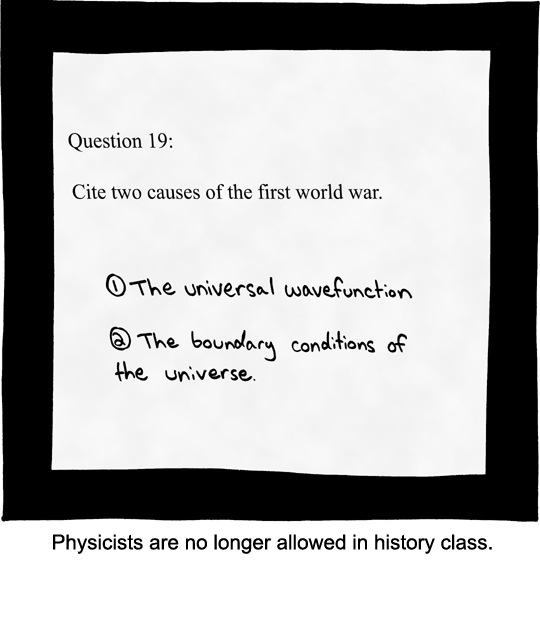 Question 19:
Cite two causes of the first world war.
① The universal wavefunction
② The boundary conditions of
the universe.
Physicists are no longer allowed in history class.